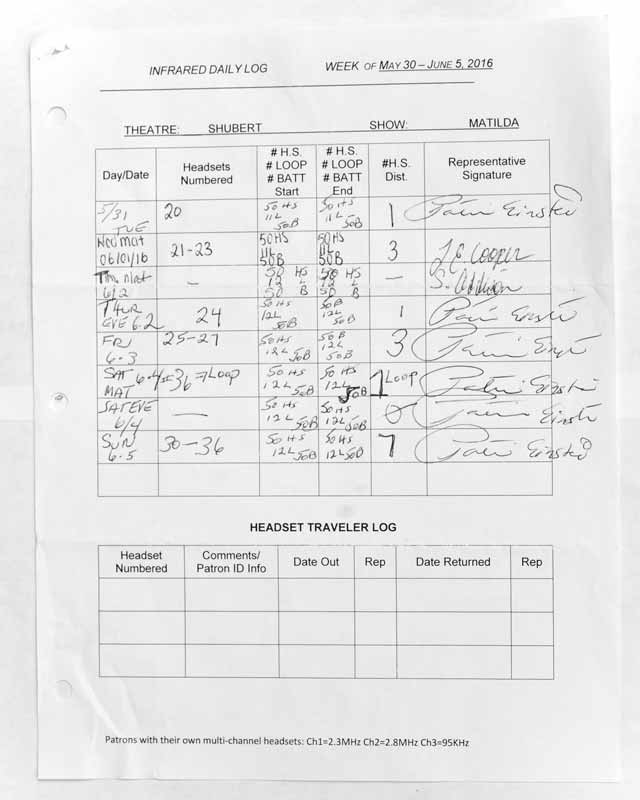 INFRARED DAILY LOG WEEK OF MAY 30 – JUNE 5, 2016
THEATRE: SHUBERT SHOW: MATILDA
Day/Date Headsets Numbered # H.S. # LOOP # BATT Start # H.S. # LOOP # BATT End #H.S. Dist. Representative Signature
5/31 TUE 20 50 HS 11L 50B 50 HS 11L 50B 1
Wed mat 06/01/16 21-23 50HS 11L 50B 50HS 11L 50B 3 J.E. Cooper
6/2 — 50 HS 12 L 50 B 50 HS 12 L 50 B — S.
THUR EVE 6.2 24 50 HS 12L 50B 50B 12L 50B 1
FRI 6.3 25-27 50HS 12L 50B 50B 12L 50B 3
SAT MAT 6.4 #36 = LOOP 50 HS 12L 50B 50 HS 12L 50B 1 LOOP
SAT EVE 6/4 — 50 HS 12L 50B 50 HS 12L 50B 0
SUN 6.5 30-36 50 HS 12L 50B 50 HS 12L 50B 7
HEADSET TRAVELER LOG
Headset Numbered Comments/ Patron ID Info Date Out Rep Date Returned Rep
Patrons with their own multi-channel headsets: Ch1=2.3MHz Ch2=2.8MHz Ch3=95KHz